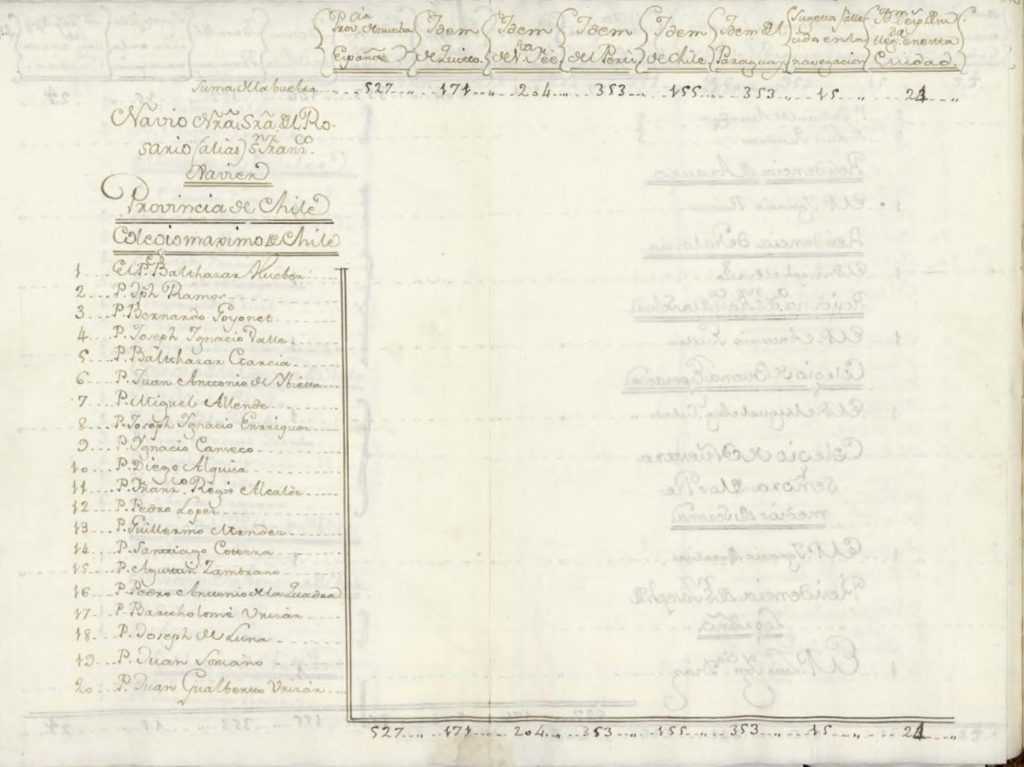 Provª Españª
Idem de Quitto
Idem de Nª Sª Fee
Idem del Perú
Idem de Chile
Idem del Paraguay
Sugettos falle cidos en la navegacion
Ciudad.
Suma de la buelta 527 171 204 353 155 353 15 24
Navio Nrã. Srã. del Ro-
sario (alias) Sn. Franco.
Xavier
Provincia de Chile
Colegio maximo de Chile
1 El P. Balthasar Hueber
2 P. Jph Ramos
3 P. Bernardo Goyonet
4 P. Joseph Ygnacio Valle
5 P. Balthasar Garcia
6 P. Juan Anttonio de Ybietta
7 P. Miguel Allende
8 P. Joseph Ygnacio Enrriquez
9 P. Ygnacio Canseco
10 P. Diego Alquisa
11 P. Franco. Regis Alcalde
12 P. Pedro Lopez
13 P. Guillermo Mendez
14 P. Santtiago
15 P. Agustin Zambrano
16 P. Pedro Anttonio de la Quadra
17 P. Bartholomé Urizàr
18 P. Joseph de Luna
19 P. Juan Somano
20 P. Juan Gualbertto Urizár
527 171 204 353 155 353 15 24